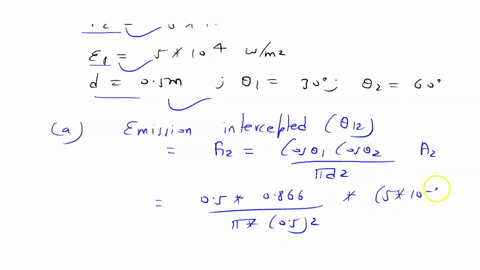 E1 = 5 * 10^4 W/m2
d = 0.5m ; θ1 = 30°; θ2 = 60°
(a) Emission intercepted (θ12)
= A2 = Cosθ1 Cosθ2 / πd2 A2
= 0.5 * 0.866 / π * (0.5)2 * (5*10-